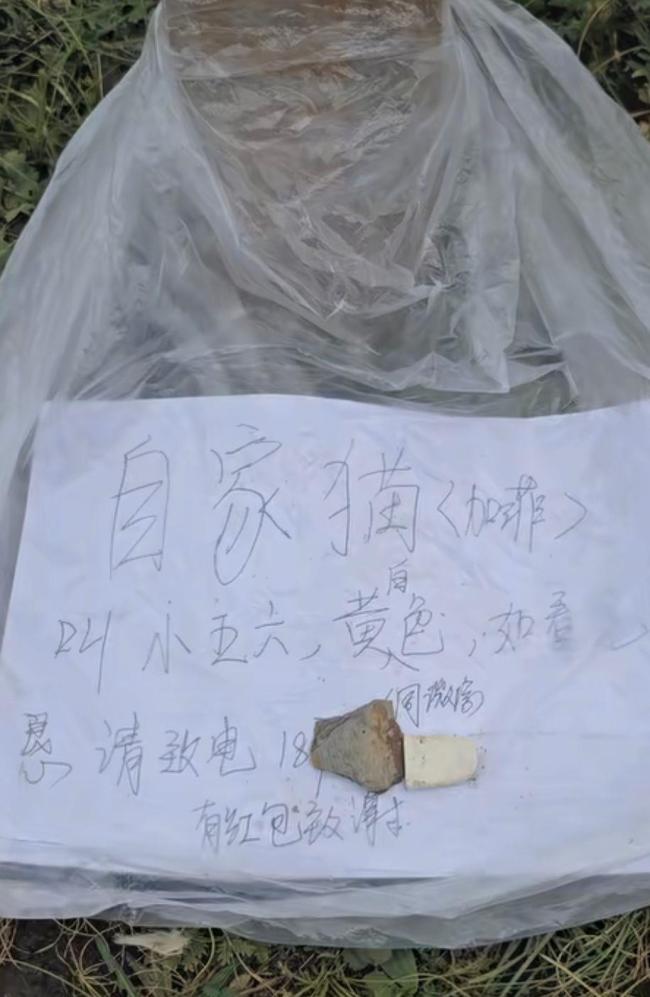 自家猫<加菲>
叫小五六，黄白色，如看
同微信
恳请致电18
有红包致谢!